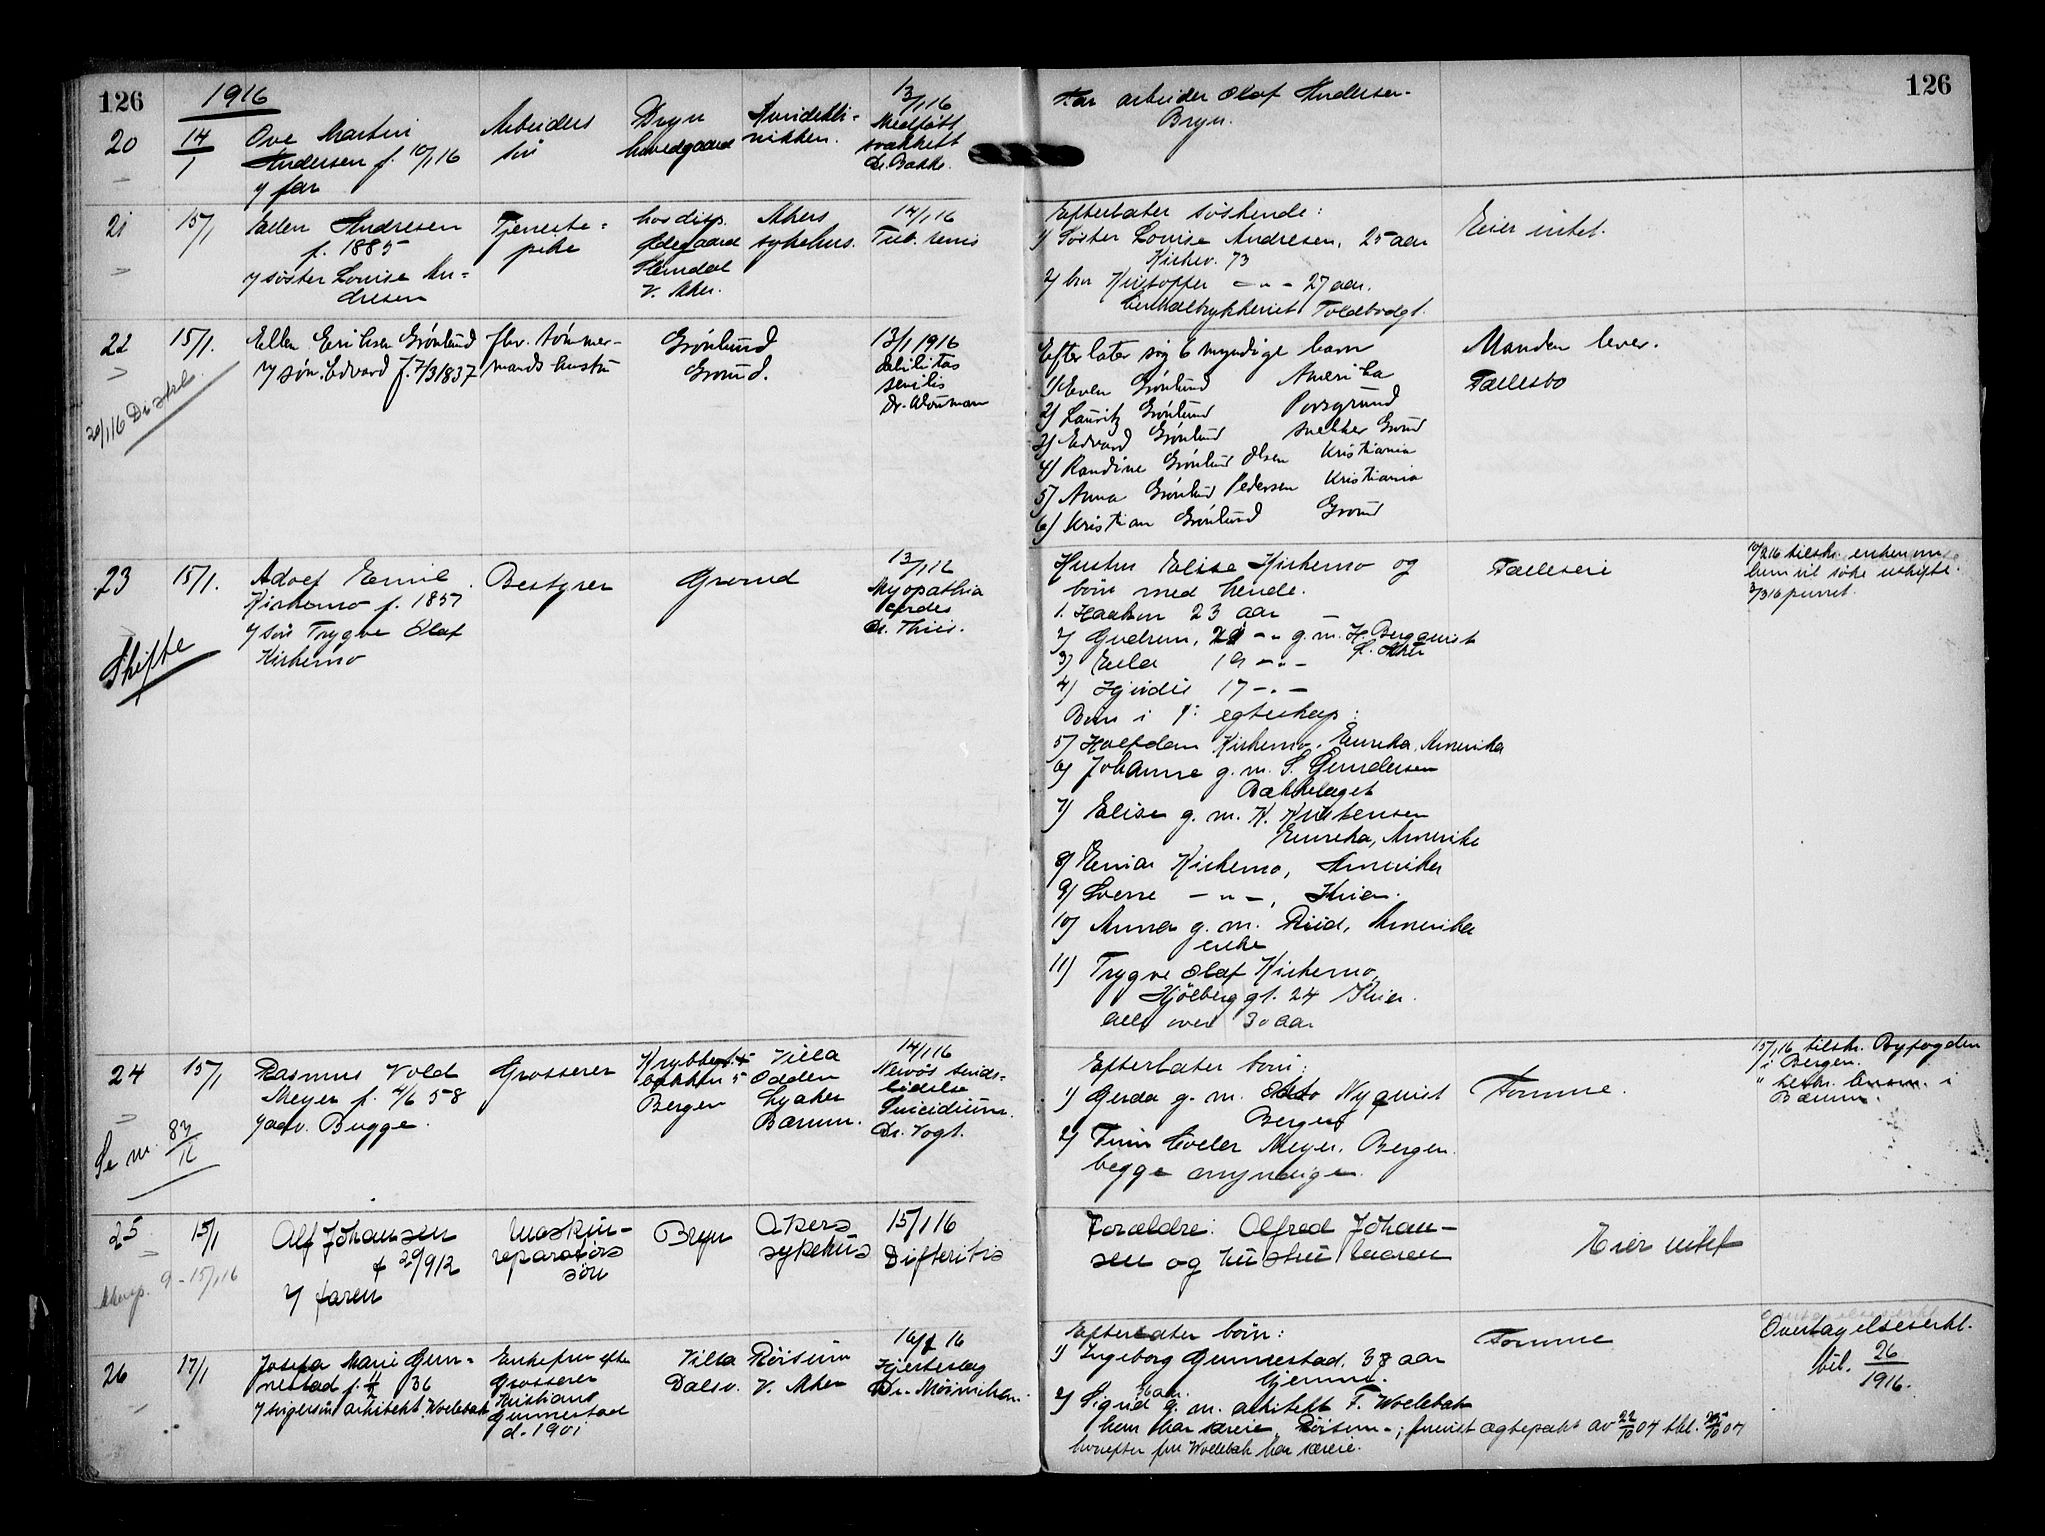 126
1916
20
14/1
Ove Martin
Andersen f. 10/1 16
v/ far
Arbeiders
søn
Bryn
hovedgaard
Kvindekli-
nikken.
13/1 16
Medfødt
svakhett
Dr. Bakke.
Far arbeider Olaf Andersen.
Bryn.
126
21
15/1
Ellen Andresen
f. 1885
v/ søster Louise An-
dresen
Tjeneste-
pike
hos disp.
Ødegaard
Slemdal
V. Aker.
Akers
sykehus.
14/1 16
Tub. renis
Efterlater søskende:
1) Søster Louise Andresen, 25 aar
Kirkev. 73
2) bror Kristoffer - " - 27 aar.
Centraltrykkeriet Toldbodgt.
Eier intet.
22
15/1.
Ellen Eriksen Grønlund
v/ søn Edvard f. 7/3 1837
fhv. tømmer-
mands hustru
Grønlund
Grorud.
13/1 1916
debilitas
senilis
Dr. Wouman
20/1 16
Efterlater sig 6 myndige barn
1) Even Grønlund Amerika
2) Lauritz Grønlund Porsgrund
3) Edvard Grønlund snekker Grorud
4) Randine Grønlund Olsen Kristiania
5) Anna Grønlund Pedersen Kristiania
6) Kristian Grønlund Grorud
Manden lever.
Fællesbo
23
15/1.
Adolf Emil
Kirkemo f. 1857
v/ søn Trygve Olaf
Kirkemo
Skifte
Bestyrer
Grorud
13/1 16
Myopathia
cordis
Dr. Thiis.
Hustru Elise Kirkemo og
børn med hende.
1. Haakon 23 aar
2) Gudrun, 21 - " g. m. H. Bergquist
Ø. Aker
3) Erla 19 - " -
4) Hjørdis 17 - " -
Børn i 1' egteskap:
5) Halfdan Kirkemo, Eureka, Amerika
6) Johanne g. m. S. Gundersen
Bækkelaget
7) Elise g. m. K. Kristensen
Eureka, Amerika
8) Einar Kirkemo, Amerika
9) Sverre - " -, Kria.
10) Anna g. m. Riid, Amerika
enke
11) Trygve Olaf Kirkemo,
Hjølberg gt. 24 Kria.
alle over 30 aar
Fælleseie
10/2 16 tilskr. enken om
hun vil søke uskifte.
3/3 16 purret.
24
15/1
Rasmus Vold
Meyer f. 4/6 58
v/ adv. Bugge.
Se nr. 83/16
Grosserer
bakken 5
Bergen
Villa
Odden
Lysaker
Bærum.
14/1 16
Nervøs sinds-
lidelse
Suicidium.
Dr. Vogt.
Efterlater børn:
1) Gerda g. m. Nyquist
Bergen
2) Finn Hveler Meyer, Bergen.
begge myndige.
Formue.
15/1 16 tilskr. Byfogden
i Bergen.
" lensm. i
Bærum.
25
15/1
Alf Johansen
f 29/9 12
v/ faren
9 - 15/1 16
Maskin-
reparatørs
søn
Bryn
Akers
sykehus
15/1 16
Difteritis
Forældre: Alfred Johan-
sen og hustru Maren
Eier intet
26
17/1
Josefa Marie Gun-
nestad f. 36
v/ svigersøn arkitekt Woelebæk
Enkefru efter
Grosserer
Kristiane
Gunnestad
d. 1901
Villa Röisum
Dalsv. V. Aker
16/1 16
Hjerteslag
Dr. Mørnichen.
Efterlater børn:
1) Ingeborg Gunnestad, 38 aar
hjemme.
2) Sigrid 36 aar. g. m. arkitekt F. Woelebæk
hun har særeie Röisum -; funnet ægtepakt av 22/10 04 tbl. 25/10 04
hvorefter fru Woelebæk har særeie.
Formue
Overtagelseserkl.
bil. 26/1916.